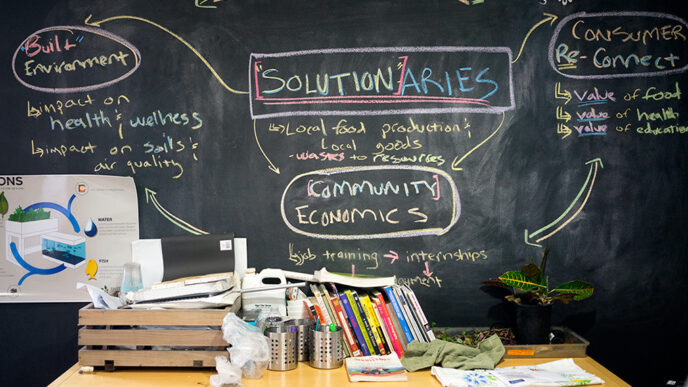 "Built"
Environment
impact on
health & wellness
impact on soils &
air quality
"SOLUTION"ARIES
Local food production &
local goods
- wastes to resources
[COMMUNITY]
ECONOMICS
job training → internships
CONSUMER
Re-Connect
value of food
value of health
value of education
ONS
WATER
FISH